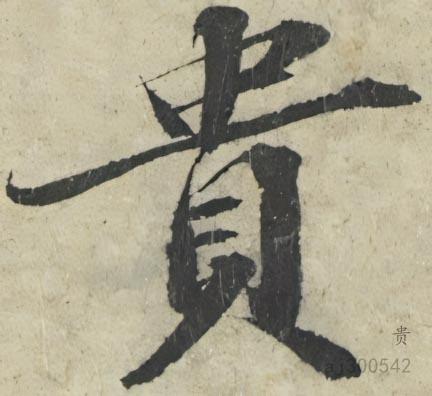 貴
贵
aj300542